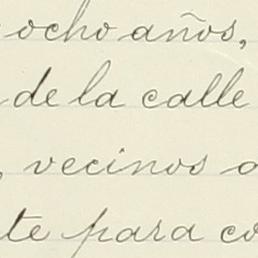 ocho años,
de la calle
, vecinos
te para co